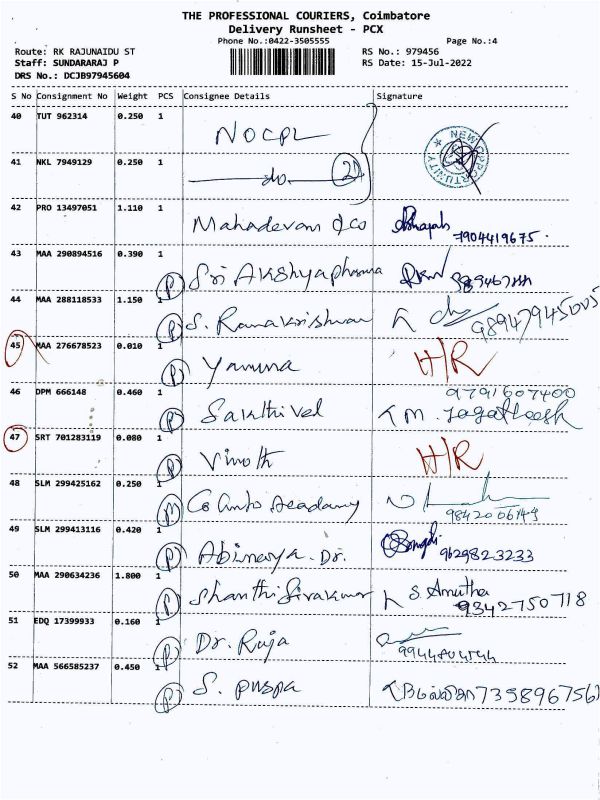 THE PROFESSIONAL COURIERS, Coimbatore
Delivery Runsheet - PCX
Phone No.:0422-3505555 Page No.:4
Route: RK RAJUNAIDU ST RS No.: 979456
Staff: SUNDARARAJ P RS Date: 15-Jul-2022
DRS No.: DCJB97945604
S No Consignment No Weight PCS Consignee Details Signature
40 TUT 962314 0.250 1 NOCPL
NEW OPPORTUNITY
41 NKL 7949129 0.250 1 do
42 PRO 13497051 1.110 1 Mahadevan & co 7904419675
43 MAA 290894516 0.390 1 P Sri Akshya pharma
44 MAA 288118533 1.150 1 P S. Ramakrishnan 98947945005
45 MAA 276678523 0.010 1 P Yamuna H/R
46 DPM 666148 0.460 1 P Sakthivel 9791607400
M. Jagatheesh
47 SRT 701283119 0.080 1 P Vinoth H/R
48 SLM 299425162 0.250 1 Academy 9842006149
49 SLM 299413116 0.420 1 P Abinaya. Dr. 9629823233
50 MAA 290634236 1.800 1 P Shanthi Sivakumar S. Amutha
9342750718
51 EDQ 17399933 0.160 1 P Dr. Raja
52 MAA 566585237 0.450 1 P S. puspa 7358967561